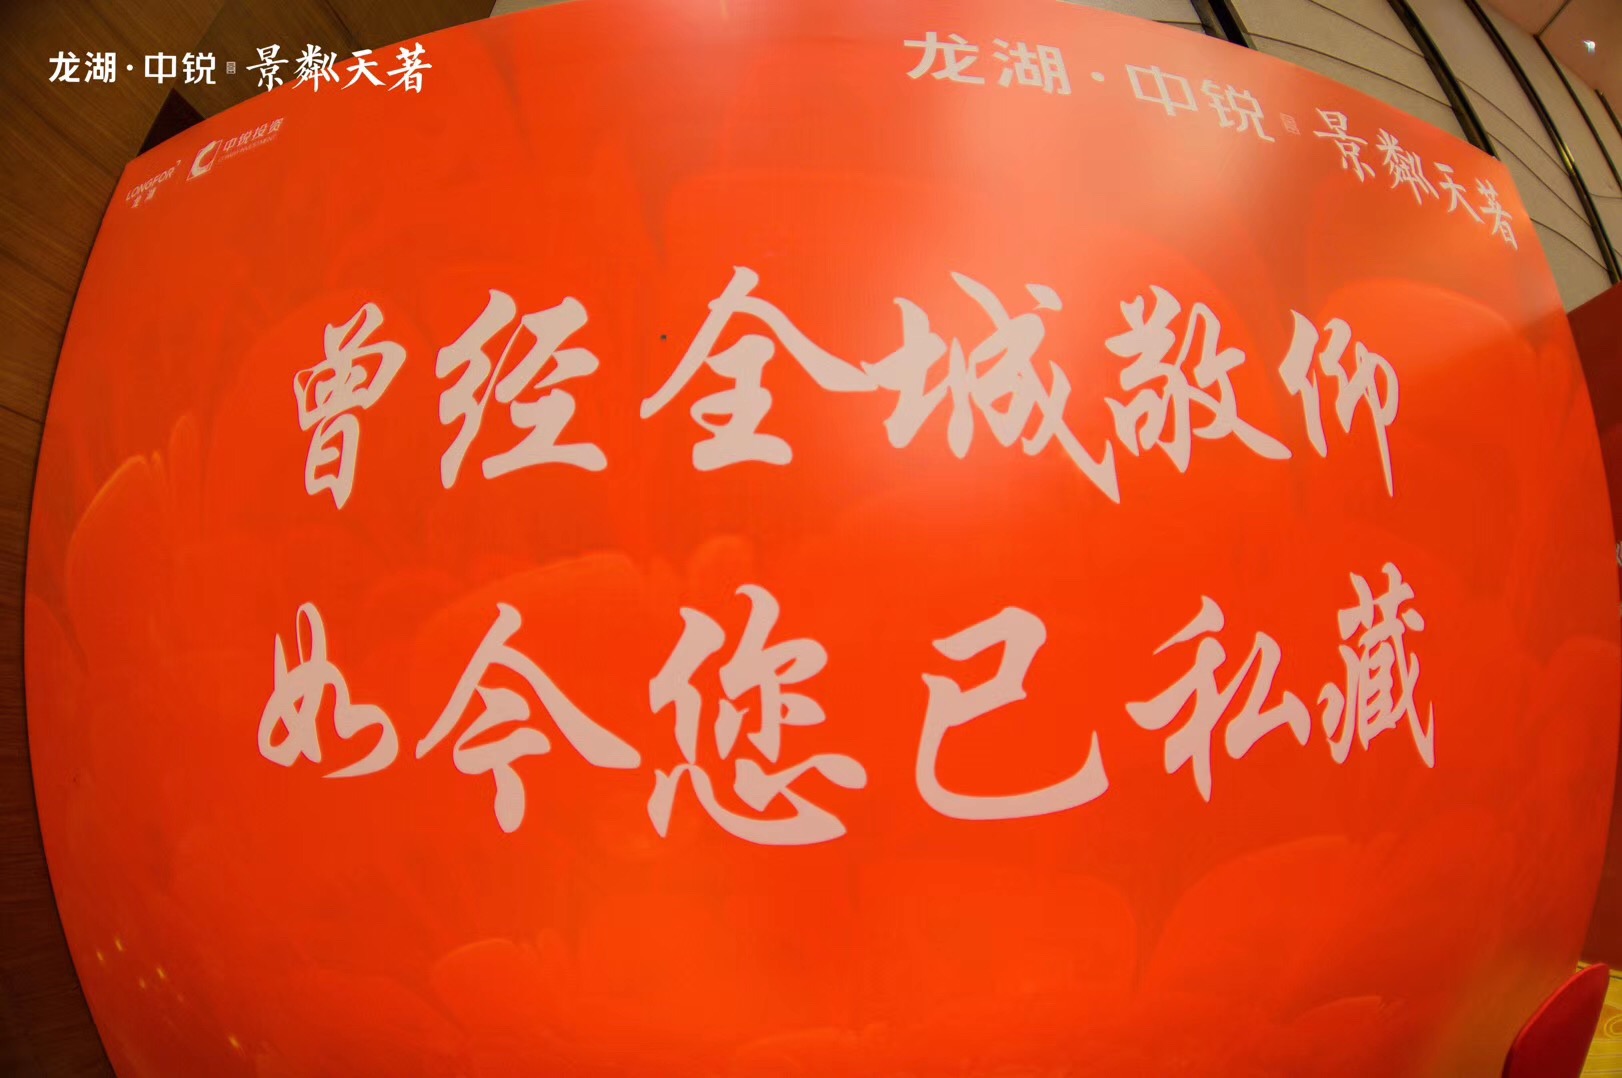 龙湖·中锐 景粼天著
LONGFOR
龙湖
中锐投资
龙湖·中锐 景粼天著
曾经全城敬仰
如今您已私藏